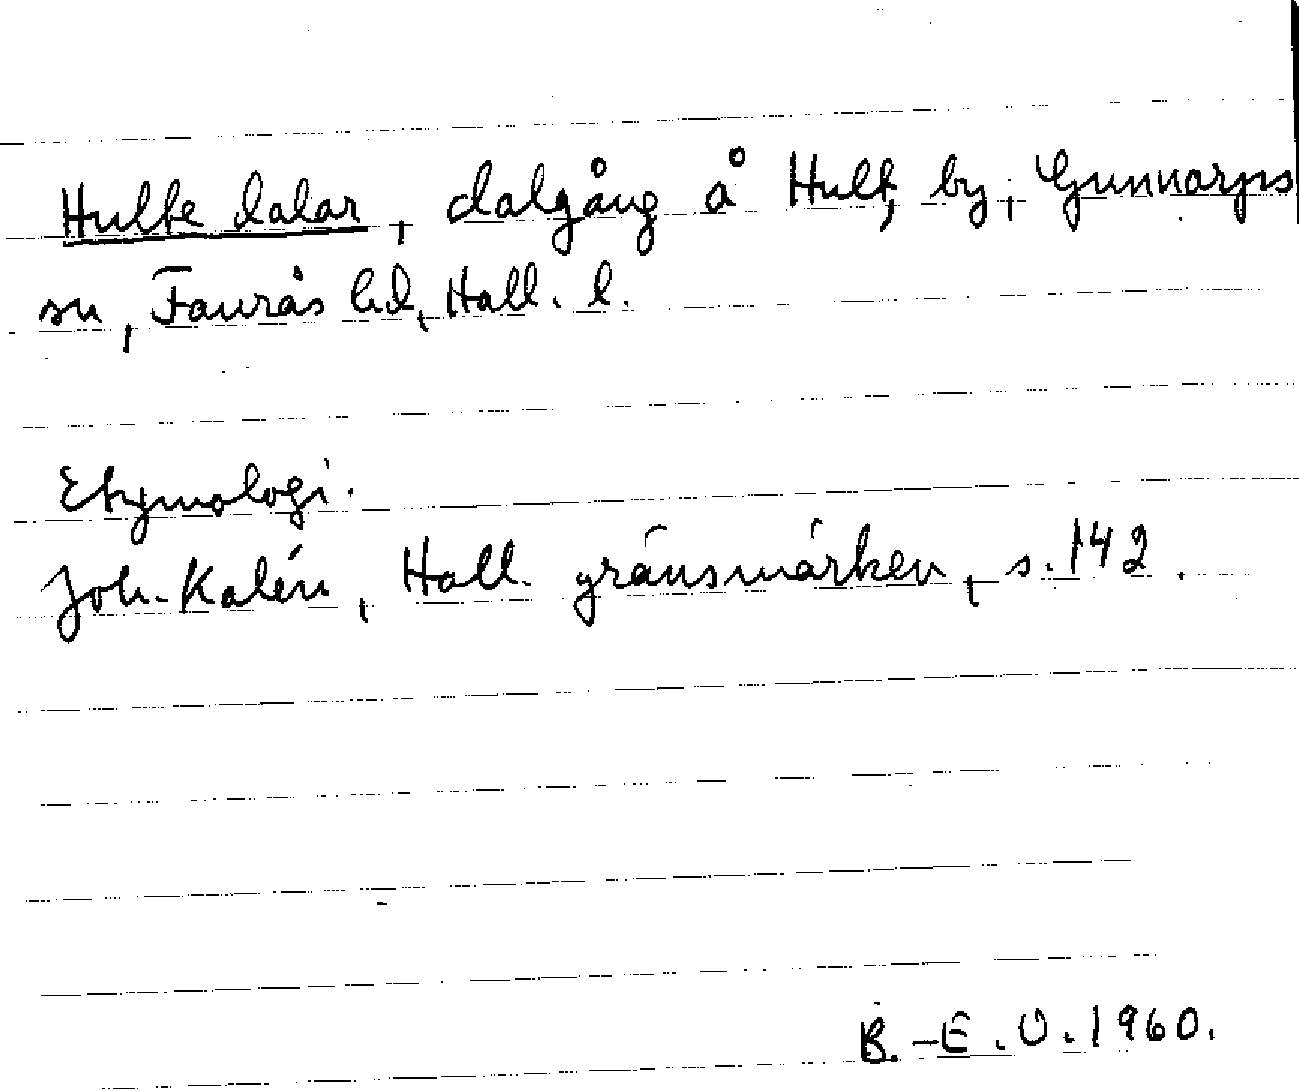 Hulte dalar, dalgång å Hult, by, Gunnarps
sn, Faurås hd, Hall. l.
Etymologi.
Joh. Kalén, Hall. gränsmärken, s. 142.
B.-E. O. 1960.